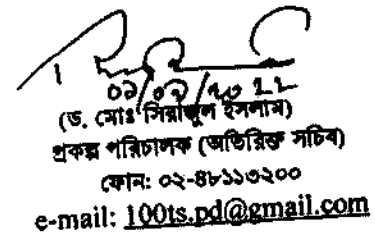 (ড. মোঃ সিরাজুল ইসলাম)
প্রকল্প পরিচালক (অতিরিক্ত সচিব)
ফোন: ০২-৪৮১১৩২০০
e-mail: 100ts.pd@gmail.com